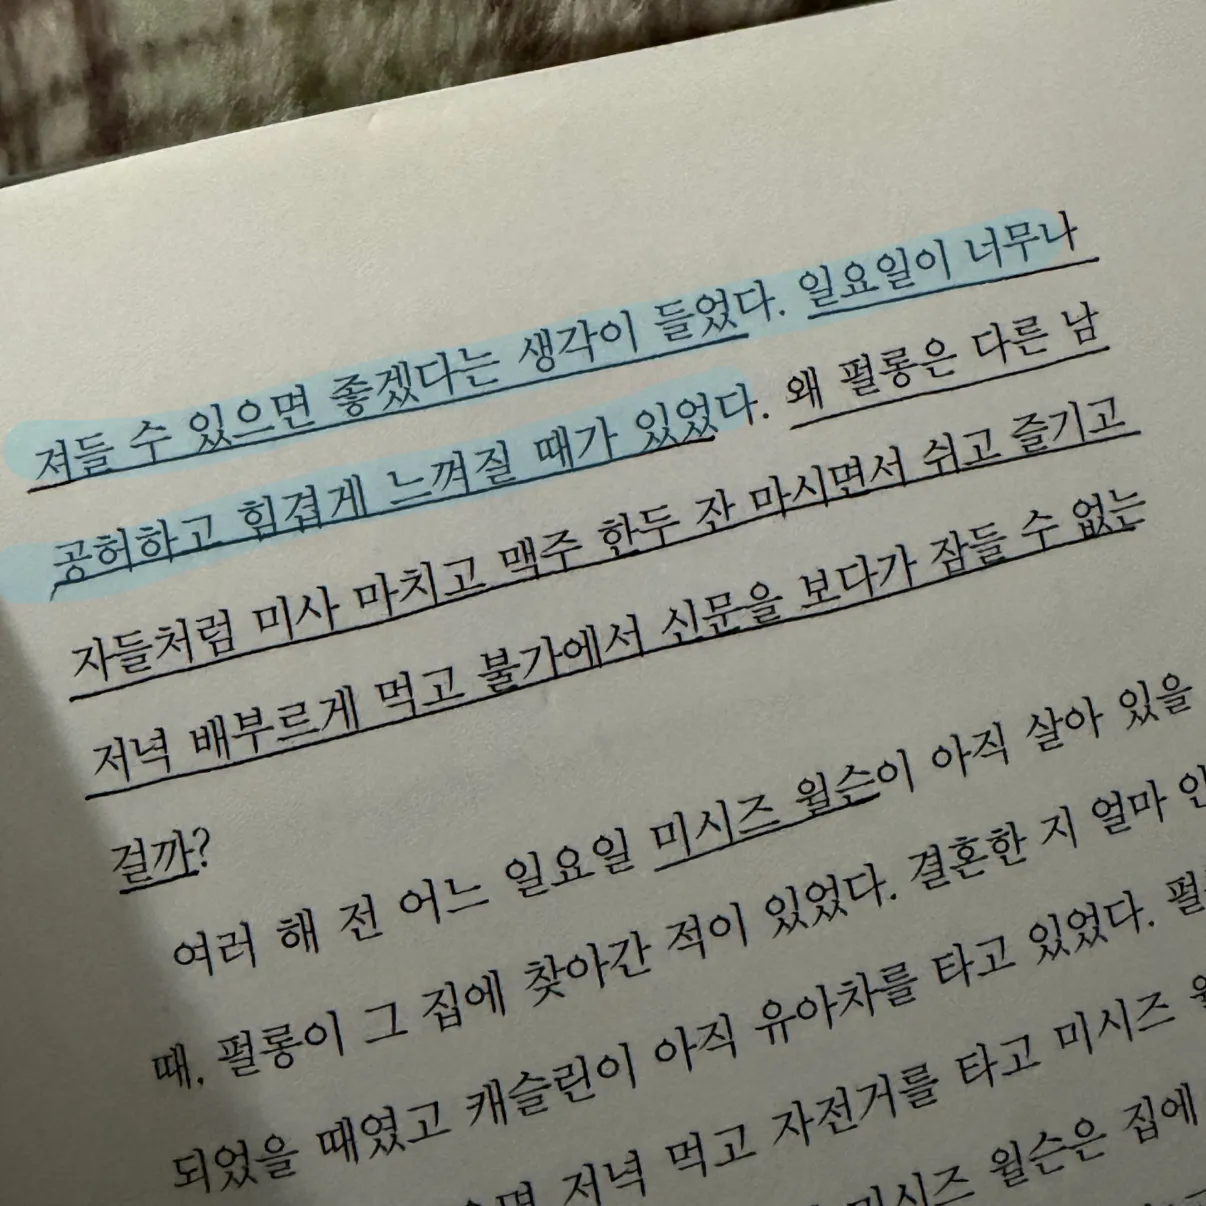 져들 수 있으면 좋겠다는 생각이 들었다. 일요일이 너무나
공허하고 힘겹게 느껴질 때가 있었다. 왜 펄롱은 다른 남
자들처럼 미사 마치고 맥주 한두 잔 마시면서 쉬고 즐기고
저녁 배부르게 먹고 불가에서 신문을 보다가 잠들 수 없는
걸까?
여러 해 전 어느 일요일 미시즈 윌슨이 아직 살아 있을
때, 펄롱이 그 집에 찾아간 적이 있었다. 결혼한 지 얼마
되었을 때였고 캐슬린이 아직 유아차를 타고 있었다.
저녁 먹고 자전거를 타고 미시즈
미시즈 윌슨은 집에